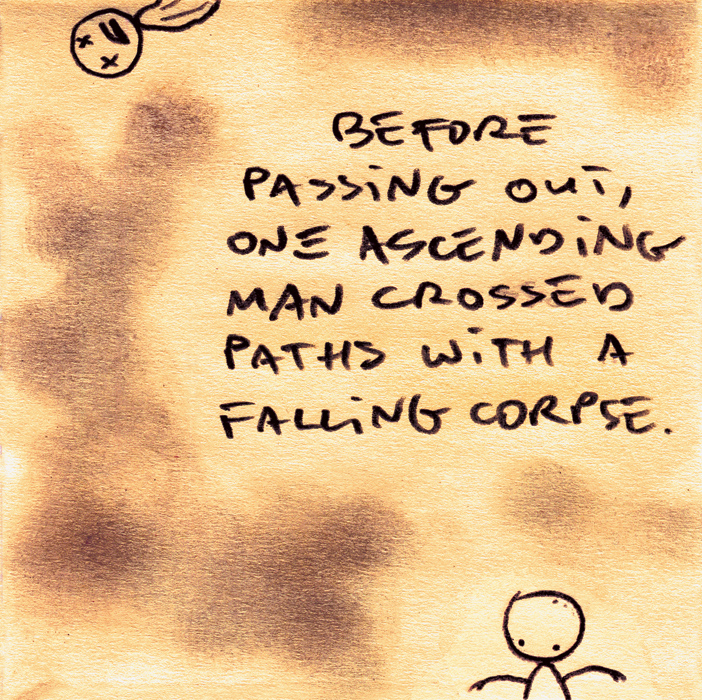 BEFORE
PASSING OUT,
ONE ASCENDING
MAN CROSSED
PATHS WITH A
FALLING CORPSE.